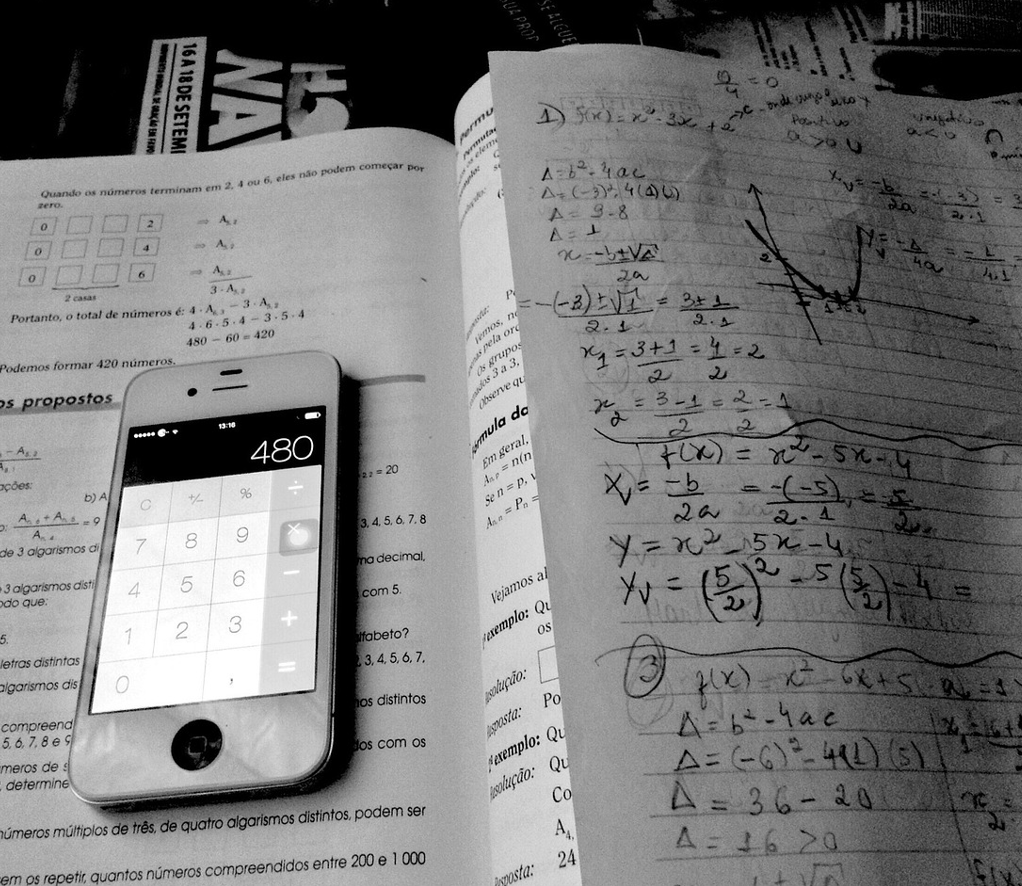 16 A 18 DE SETEM
NA
Quando os números terminam em 2, 4 ou 6, eles não podem começar por
zero.
0 2 ⇒ A₅,₂
0 4 ⇒ A₅,₂
0 6 ⇒ A₅,₂
2 casas
3 · A₅,₂
Portanto, o total de números é: 4 · A₆,₃ − 3 · A₅,₂
4 · 6 · 5 · 4 − 3 · 5 · 4
480 − 60 = 420
Podemos formar 420 números.
os propostos
ações:
b) A
= 20
= 9
3, 4, 5, 6, 7, 8
de 3 algarismos di
na decimal,
3 algarismos disti
com 5.
odo que:
5.
lfabeto?
letras distintas
2, 3, 4, 5, 6, 7,
algarismos dis
nos distintos
compreend
5, 6, 7, 8 e 9
dos com os
meros de s
, determine
números múltiplos de três, de quatro algarismos distintos, podem ser
em os repetir, quantos números compreendidos entre 200 e 1 000
13:16
480
C +/− % ÷
7 8 9 ×
4 5 6 −
1 2 3 +
0 , =
Permu
Permutaç
Vemos, no
mas pela ord
Os grupos
3 a 3,
Observe qu
Fórmula da
Em geral,
Aₙ,ₚ = n(n
Se n = p, v
Aₙ,ₙ = Pₙ =
Vejamos al
exemplo: Qu
os
Resolução:
Resposta: Po
exemplo: Qu
Resolução: Qu
Co
A₄,
Resposta: 24
= 0
1) f(x) = x² - 3x + 2
a > 0 ∪
a < 0 ∩
Δ = b² - 4ac
Δ = 9 - 8
Δ = 1
x = -b ± √Δ / 2a
= -(-3) ± √1 / 2.1 = 3 ± 1 / 2.1
x₁ = 3 + 1 / 2 = 4 / 2 = 2
x₂ = 3 - 1 / 2 = 2 / 2 = 1
Xv = -b / 2a = -(-3) / 2.1 = 3
Yv = -Δ / 4a = -1 / 4.1
2
1 2
f(x) = x² - 5x - 4
Xv = -b / 2a = -(-5) / 2.1 = 5 / 2
Y = x² - 5x - 4
Yv = (5/2)² - 5(5/2) - 4 =
3
f(x) = x² - 6x + 5
Δ = b² - 4ac
Δ = (-6)² - 4(1)(5)
Δ = 36 - 20
Δ = 16 > 0